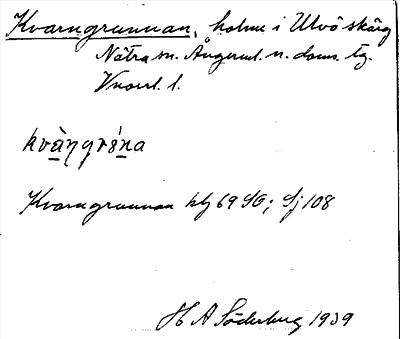 Kvarngrunnan, holme i Ulvö skärg
Nätra sn. Ångerml. n. doms. tg.
Vnorrl. l.
kvàŋgrúna
Kvarngrunnan kbl 69 SO; Sj 108
H A Söderberg 1939